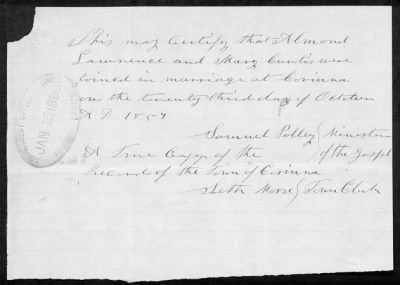 This may Certify that Almond
Lawrence and Mary Curtis were
Joined in marriage at Corinna
on the twenty third day of October
A.D 1857
Samuel Polley Minister
of the Gospel
A True Copy of the
record of the Town of Corinna
Seth Morse Town Clerk
JAN 15 1889